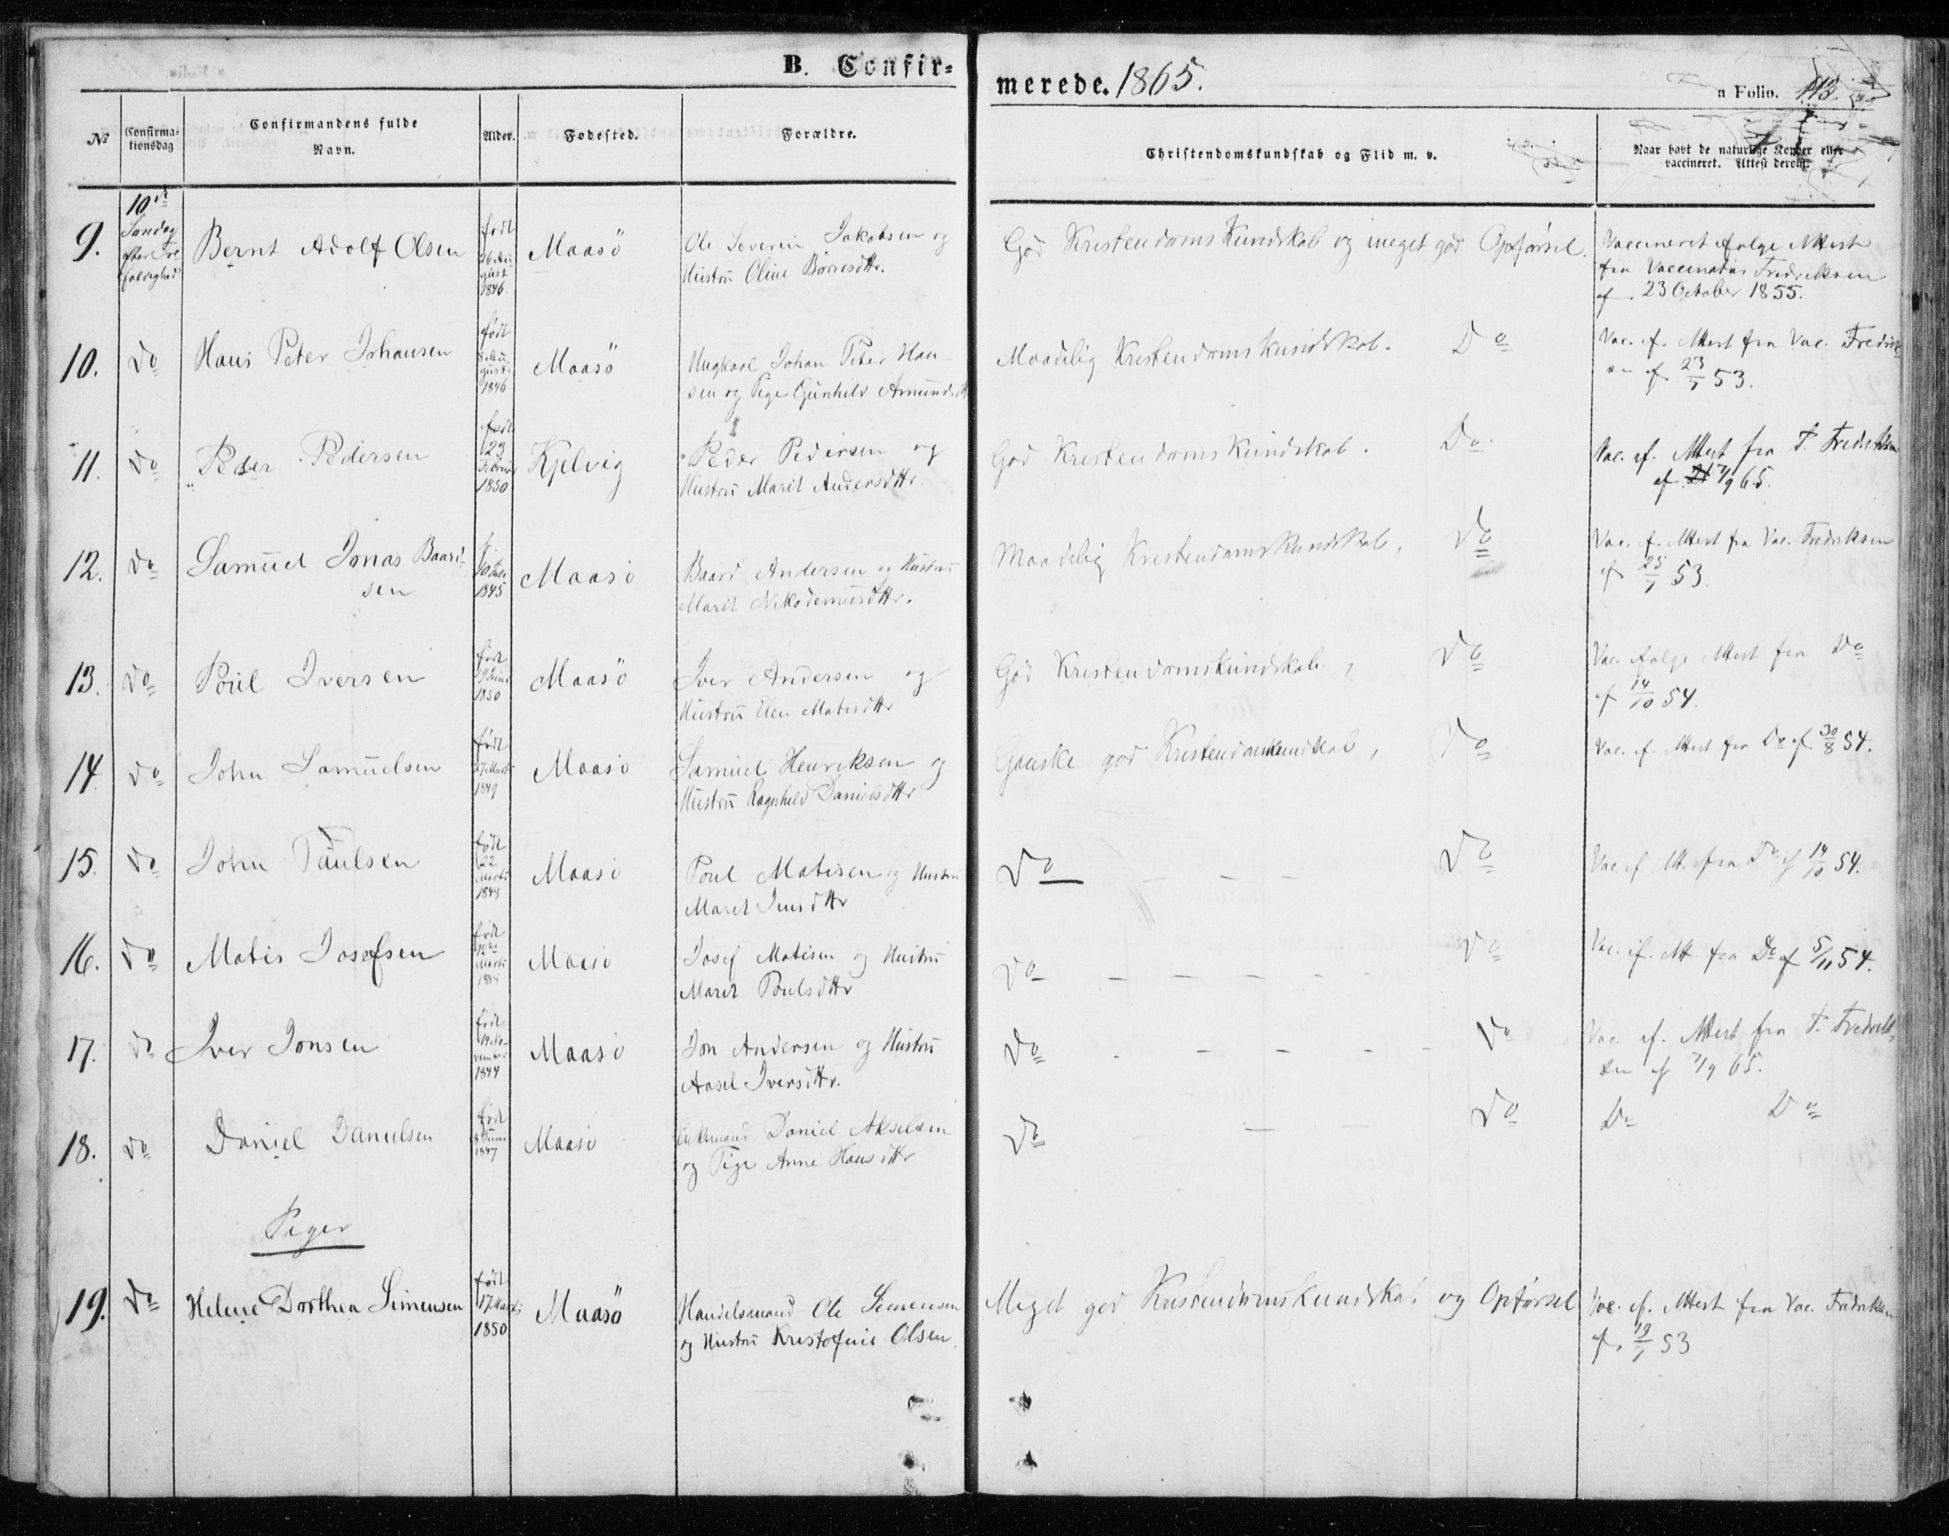 B. Confir-
merede. 1865.
n Folio. 113.
No
Confirma-
tionsdag
Confirmandens fulde
Navn.
Alder.
Fødested.
Forældre.
Christendomskundskab og Flid m. v.
Naar havt de naturlige Kopper eller
vaccineret. Attest derom.
9.
10de
Søndag
efter Tre
foldighed
Bernt Adolf Olsen
født
26 Au
gust
1846
Maasö
Ole Severin Jakobsen og
Hustru Oline Børresdttr.
God Kristendoms Kundskab og meget god Opførsel.
Vaccineret ifølge Attest
fra Vaccinatør Fredriksen
af 23 October 1855.
10.
Do
Hans Peter Johansen
født
8 Au
gust
1846
Maasö
Ungkarl Johan Peter Han-
sen og Pige Gunhild Amundsdttr
Maadelig Kristendomskundskab.
Do
Vac. if. Attest fra Vac. Fredrik
sen af 23/1 53.
11.
Do
Peder Pedersen
født
23
Februar
1850
Kjelvig
Peder Pedersen og
Hustru Marit Andersdttr.
God Kristendomskundskab.
Do
Vac. if. Attest fra T. Fredriksen
af 7/9 65.
12.
Do
Samuel Jonas Baard-
sen
1845
Maasö
Baard Andersen og Hustru
Marit Nikodemusdttr.
Maadelig Kristendomskundskab,
Do
Vac. if. Attest fra Vac. Fredriksen
af 25/1 53.
13.
Do
Poul Iversen
født
19 Juni
1850
Maasö
Iver Andersen og
Hustru Elen Matisdttr
God Kristendomskundskab,
Do
Vac. ifølge Attest fra Do
af 14/10 54.
14
Do
John Samuelsen
født
27 Marts
1849
Maasö
Samuel Henriksen og
Hustru Ragnhild Danielsdttr
Ganske god Kristendomskundskab,
Do
Vac. if. Attest fra Do af 30/8 54.
15.
Do
John Paulsen
født
22
Marts
Maasö
Poul Matisen og Hustru
Marit Jensdttr
Do
Do
Vac. if. Att. fra Do af 14/10 54.
16.
Do
Matis Josefsen
født
12te
Marts
Maasö
Josef Matisen og Hustru
Marit Poulsdttr
Do
Do
Vac. if. Att fra Do af 5/11 54.
17.
Do
Iver Jonsen
født
19 No-
vember
1844
Maasö
Jon Andersen og Hustru
Aasel Iversdttr.
Do
Do
Vac. if. Attest fra T. Fredrik-
sen af 7/9 65.
18.
Do
Daniel Danielsen
født
8 Juni
1847
Maasö
Enkemand Daniel Akselsen
og Pige Anne Hansdttr
Do
Do
Do Do
Piger
19.
Do
Helene Dorthea Simensen
født
17 Marts
1850
Maasö
Handelsmand Ole Simensen
og Hustru Kristofine Olsen.
Meget god Kristendomskundskab og Opførsel
Vac. if. Attest fra Vac. Fredriksen
af 19/1 53